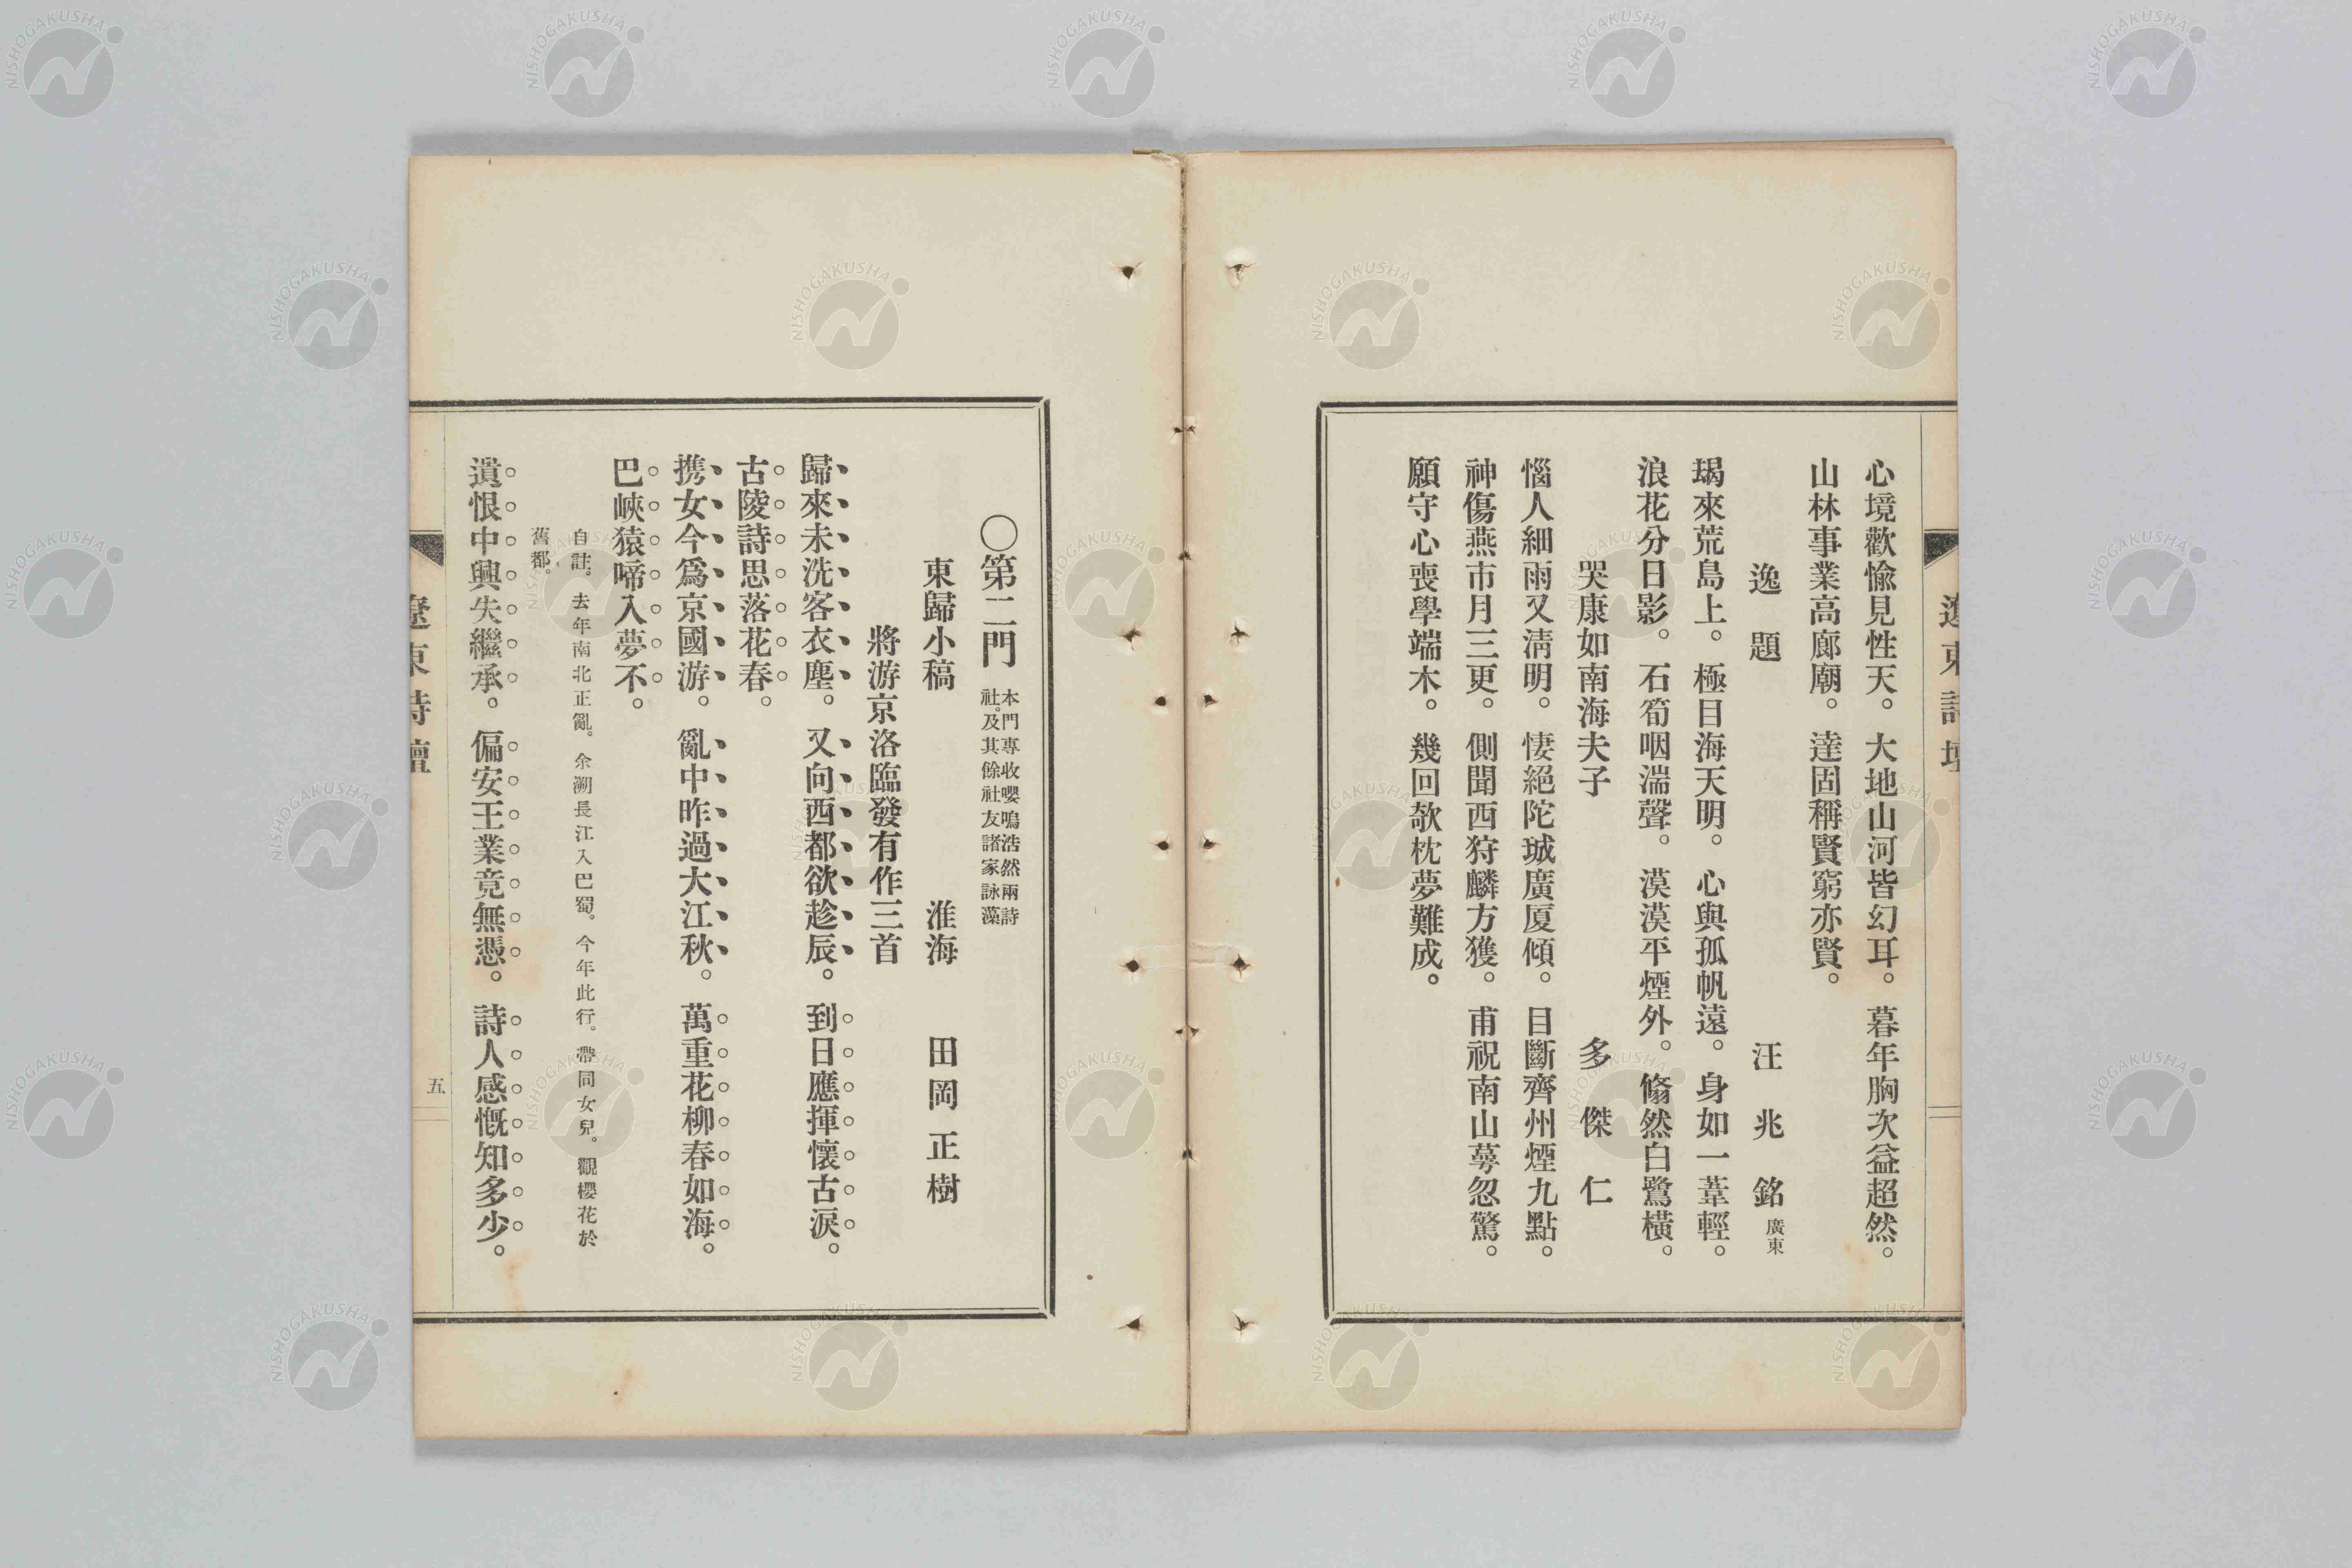 遼東詩壇
心境歡愉見性天。大地山河皆幻耳。暮年胸次益超然。
山林事業高廊廟。達固稱賢窮亦賢。
逸題 汪兆銘 廣東
朅來荒島上。極目海天明。心與孤帆遠。身如一葦輕。
浪花分日影。石筍咽湍聲。漠漠平煙外。翛然白鷺橫。
哭康如南海夫子 多傑仁
惱人細雨又淸明。悽絕陀城廣厦傾。目斷齊州煙九點。
神傷燕市月三更。側聞西狩麟方獲。甫祝南山蕚忽驚。
願守心喪學端木。幾回欹枕夢難成。
〇第二門 本門專收嚶鳴浩然兩詩
社。及其餘社友諸家詠藻
東歸小稿 淮海 田岡正樹
將游京洛臨發有作三首
歸來未洗客衣塵。又向西都欲趁辰。到日應揮懷古淚。
古陵詩思落花春。
携女今爲京國游。亂中昨過大江秋。萬重花柳春如海。
巴峽猿啼入夢不。
自註。去年南北正亂。余溯長江入巴蜀。今年此行。帶同女兒。觀櫻花於
舊都。
遺恨中興失繼承。偏安王業竟無憑。詩人感慨知多少。
遼東詩壇
五
NISHOGAKUSHA